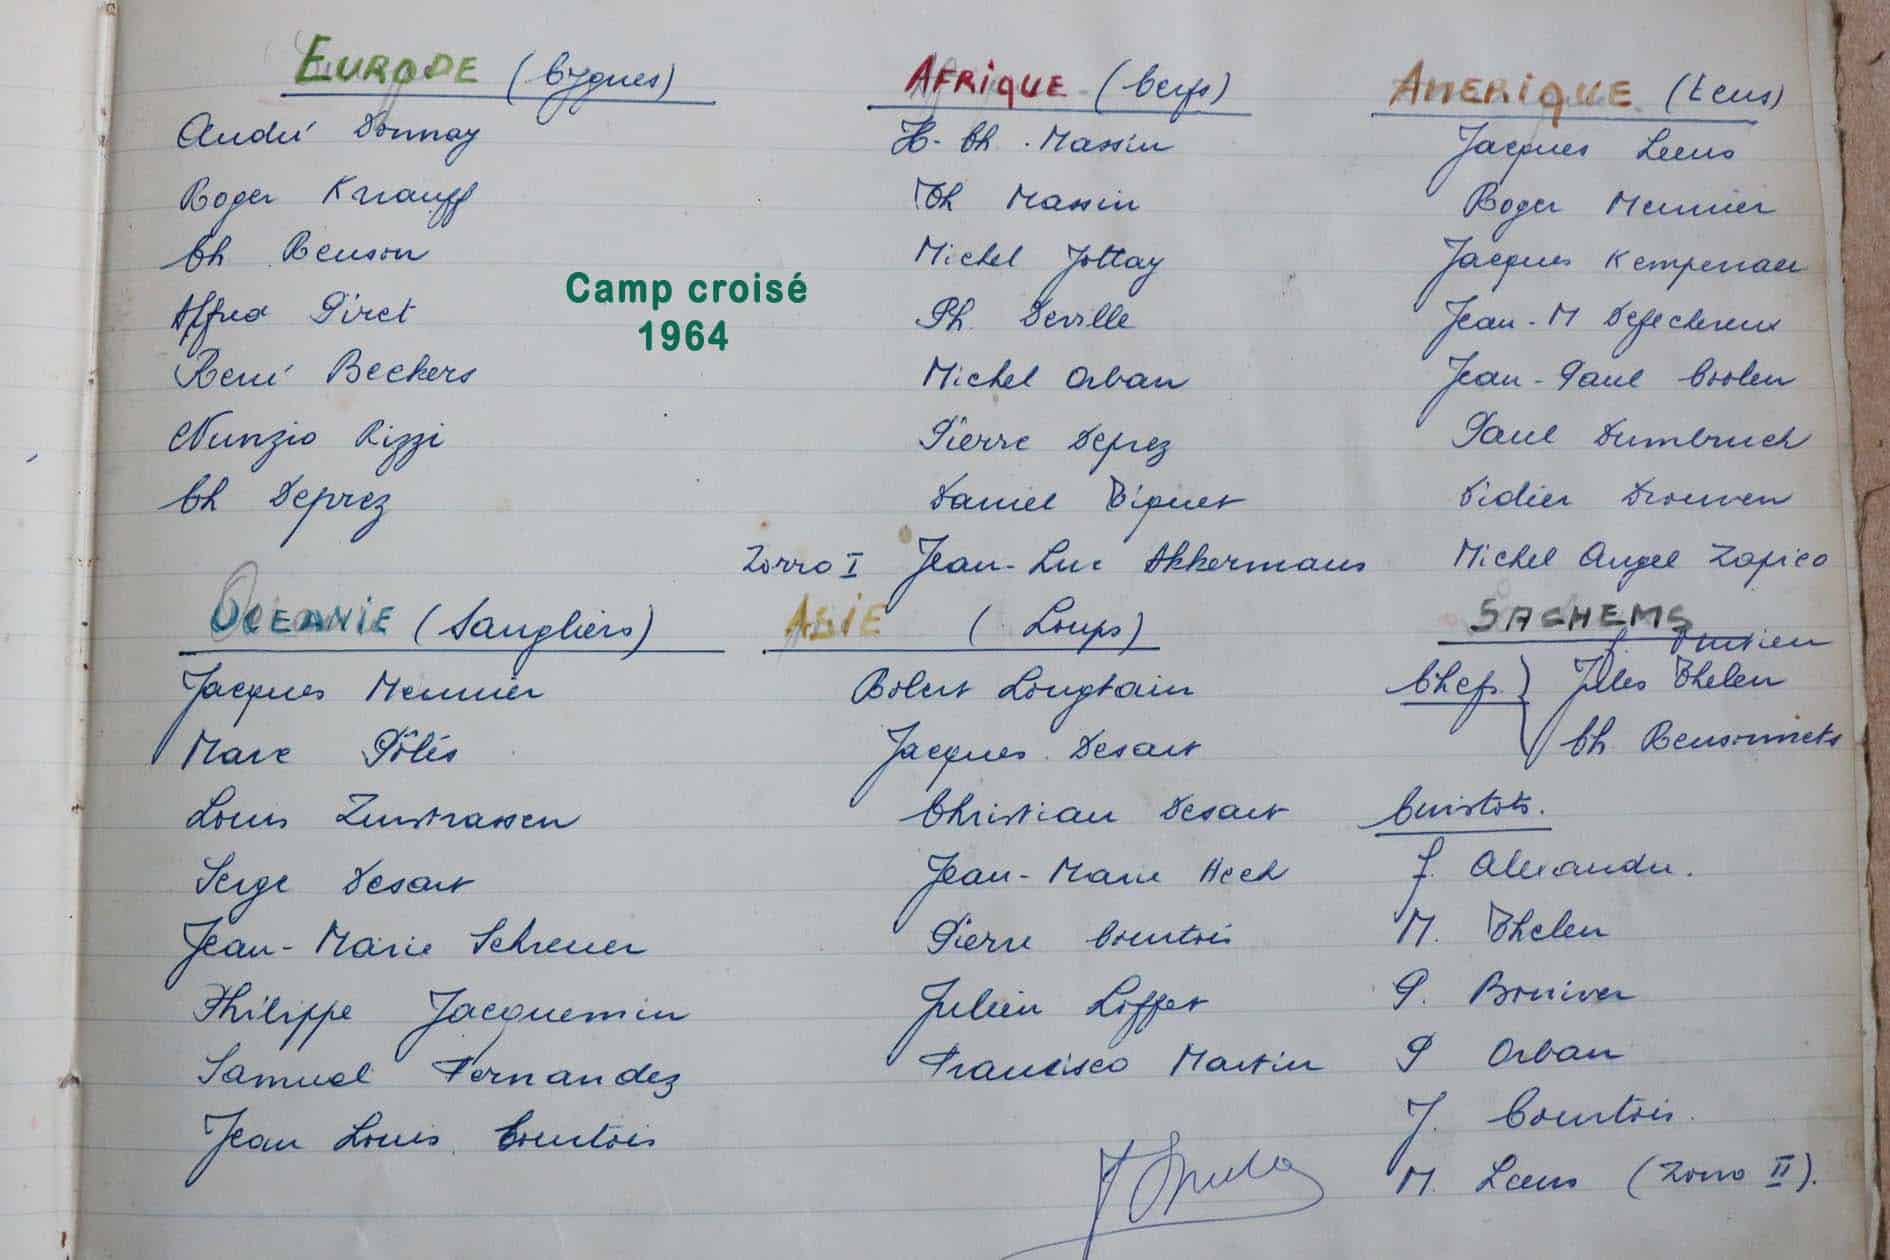 EUROPE (Cygnes)
André Donnay
Roger Knauff
Ch Renson
Alfred Piret
René Beckers
Nunzio Rizzi
Ch Deprez
AFRIQUE (Cerfs)
H. Ch. Massin
Th Massin
Michel Jottay
Ph. Deville
Michel Orban
Pierre Deprez
Daniel Biquet
Zorro I Jean-Luc Akkermans
AMERIQUE (Lens)
Jacques Leens
Roger Meunier
Jacques Kempenaer
Jean-M Defechereux
Jean-Paul Coolen
Paul Dumbruch
Didier Drouven
Michel Angel Zapico
Camp croisé
1964
OCEANIE (Sangliers)
Jacques Meunier
Marc Pôlis
Louis Zumstrassen
Serge Desart
Jean-Marie Schreuer
Philippe Jacquemin
Samuel Fernandez
Jean Louis Courtois
ASIE (Loups)
Robert Longtain
Jacques Desart
Christian Desart
Jean-Marie Heck
Pierre Courtois
Julien Loffet
Francisco Martin
SACHEMS
Chefs Jules Thelen
Ch Rensonnets
Cuistots.
J. Alexandre.
M. Thelen
P. Boniver
P Orban
J. Courtois.
M. Leens (Zorro II).